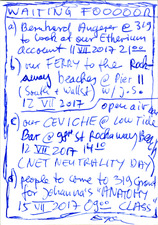 WAITING FOOOOOR
a) Bernhard Angerer @ 319
to look at our Etherium
account 11 VII 2017 21:00
b) our FERRY to the Rock-
away beaches @ Pier 11
(South + Wallst) w/ j.s.
12 VII 2017 open air bar
c) our CEVICHE @ Low Tide
Bar @ 98st Rockaway Beach
12 VII 2017 14:10
(NET NEUTRALITY DAY)
d) people to come to 319 Grand
for Johanna's "ANATOMY
15 VII 2017 09:00 CLASS"